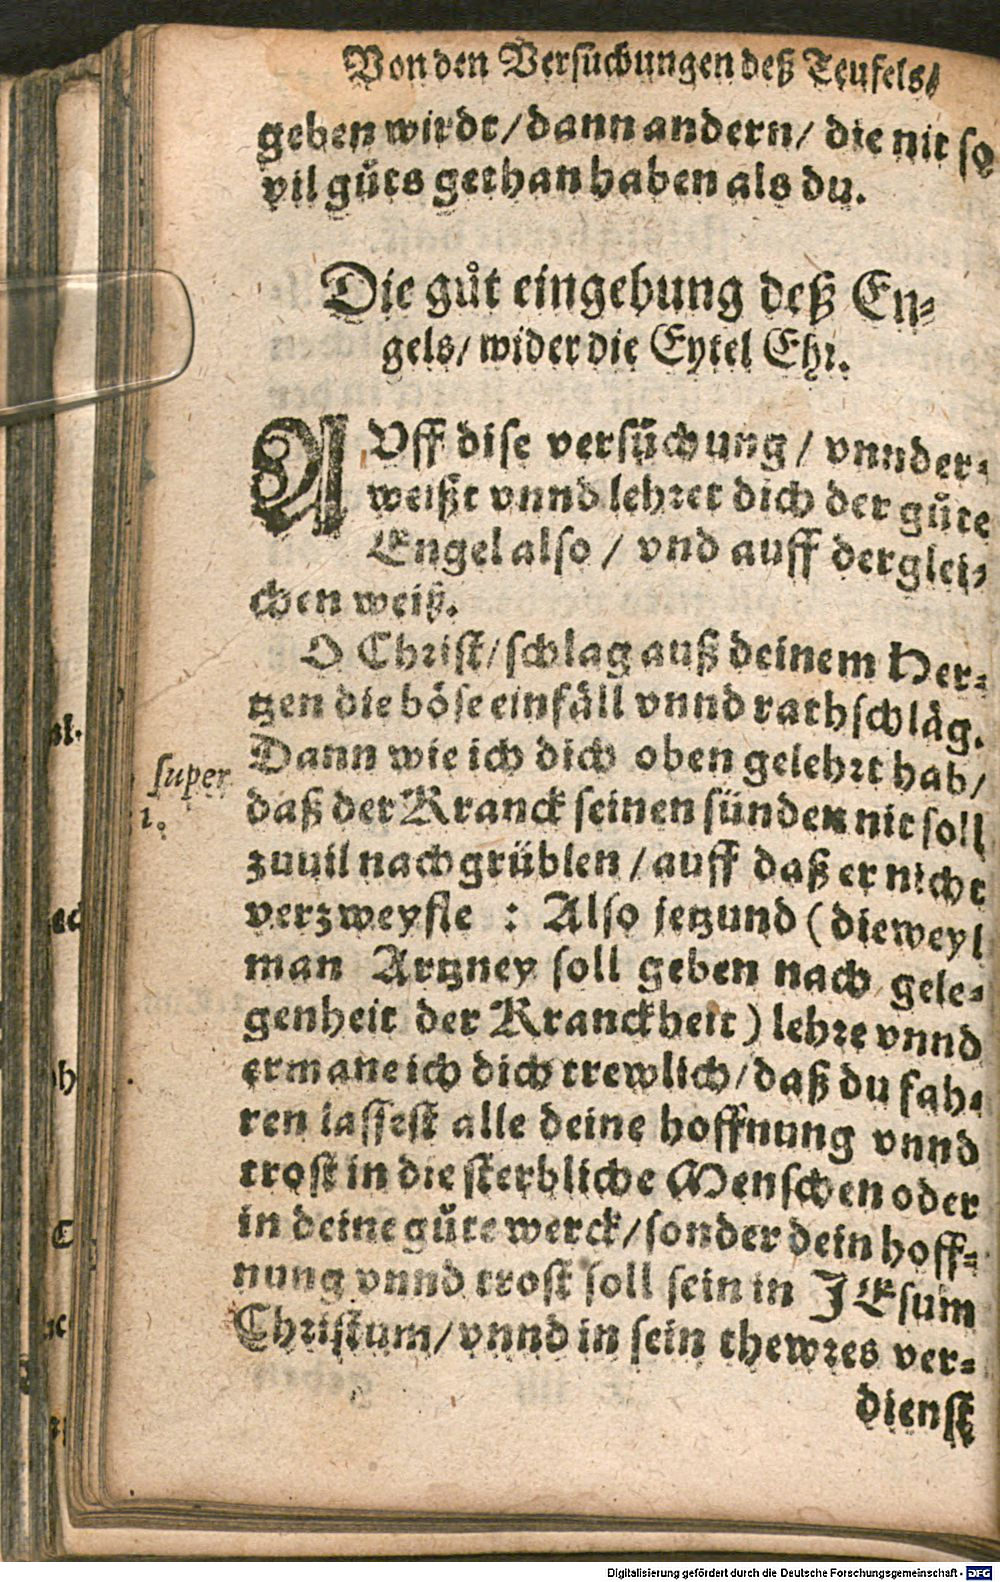 Von den Versuchungen deß Teufels/
geben wirdt/dann andern/ die nit so
vil gůts gethan haben als du.
Die gůt eingebung deß En-
gels/ wider die Eytel Ehr.
AVff dise versůchung / vnnder-
weißt vnnd lehret dich der gůte
Engel also / vnd auff derglei-
chen weiß.
O Christ/schlag auß deinem Her-
tzen die böse einfäll vnnd rathschläg.
Dann wie ich dich oben gelehrt hab/
super
1.
daß der Kranck seinen sünden nit soll
zuuil nachgrüblen / auff daß er nicht
verzweyfle : Also jetzund (dieweyl
man Artzney soll geben nach gele-
genheit der Kranckheit) lehre vnnd
ermane ich dich trewlich/daß du fah-
ren lassest alle deine hoffnung vnnd
trost in die sterbliche Menschen oder
in deine gůte werck/sonder dein hoff-
nung vnnd trost soll sein in JEsum
Christum/vnnd in sein thewres ver-
dienst
st.
ac
h
C
Digitalisierung gefördert durch die Deutsche Forschungsgemeinschaft - DFG